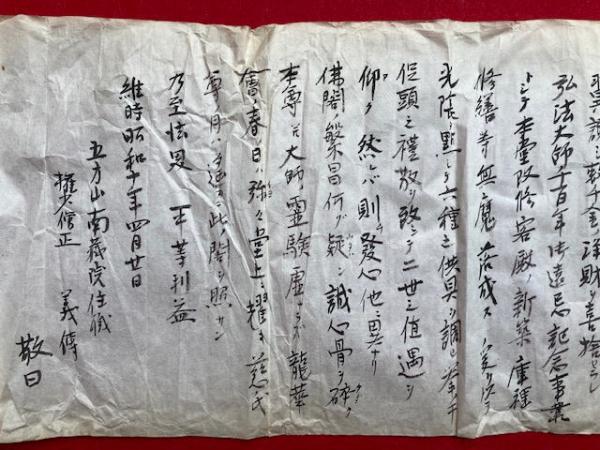 弘法大師千百年御遠忌記念事業
トシテ本堂改修客殿ノ新築庫裡
修繕等無魔落成ス
光陰ヲ點シテ六種之供具ヲ調ヒ
低頭之禮敬ヲ致シテ二世之値遇ヲ
仰ク然レバ則チ發心他ニ異ナリ
佛閣ノ繁昌何ゾ疑ン誠心骨ヲ碎ク
本尊ト大師ノ靈験虚シカラズバ龍華
會ノ春ノ日ハ弥々堂上ニ耀キ慈氏
尊ノ月ハ迢ニ此ノ閣ヲ照サン
乃至法界平等利益
維時昭和十年四月廿日
五方山南蔵院住職
權大僧正 義傳
敬曰